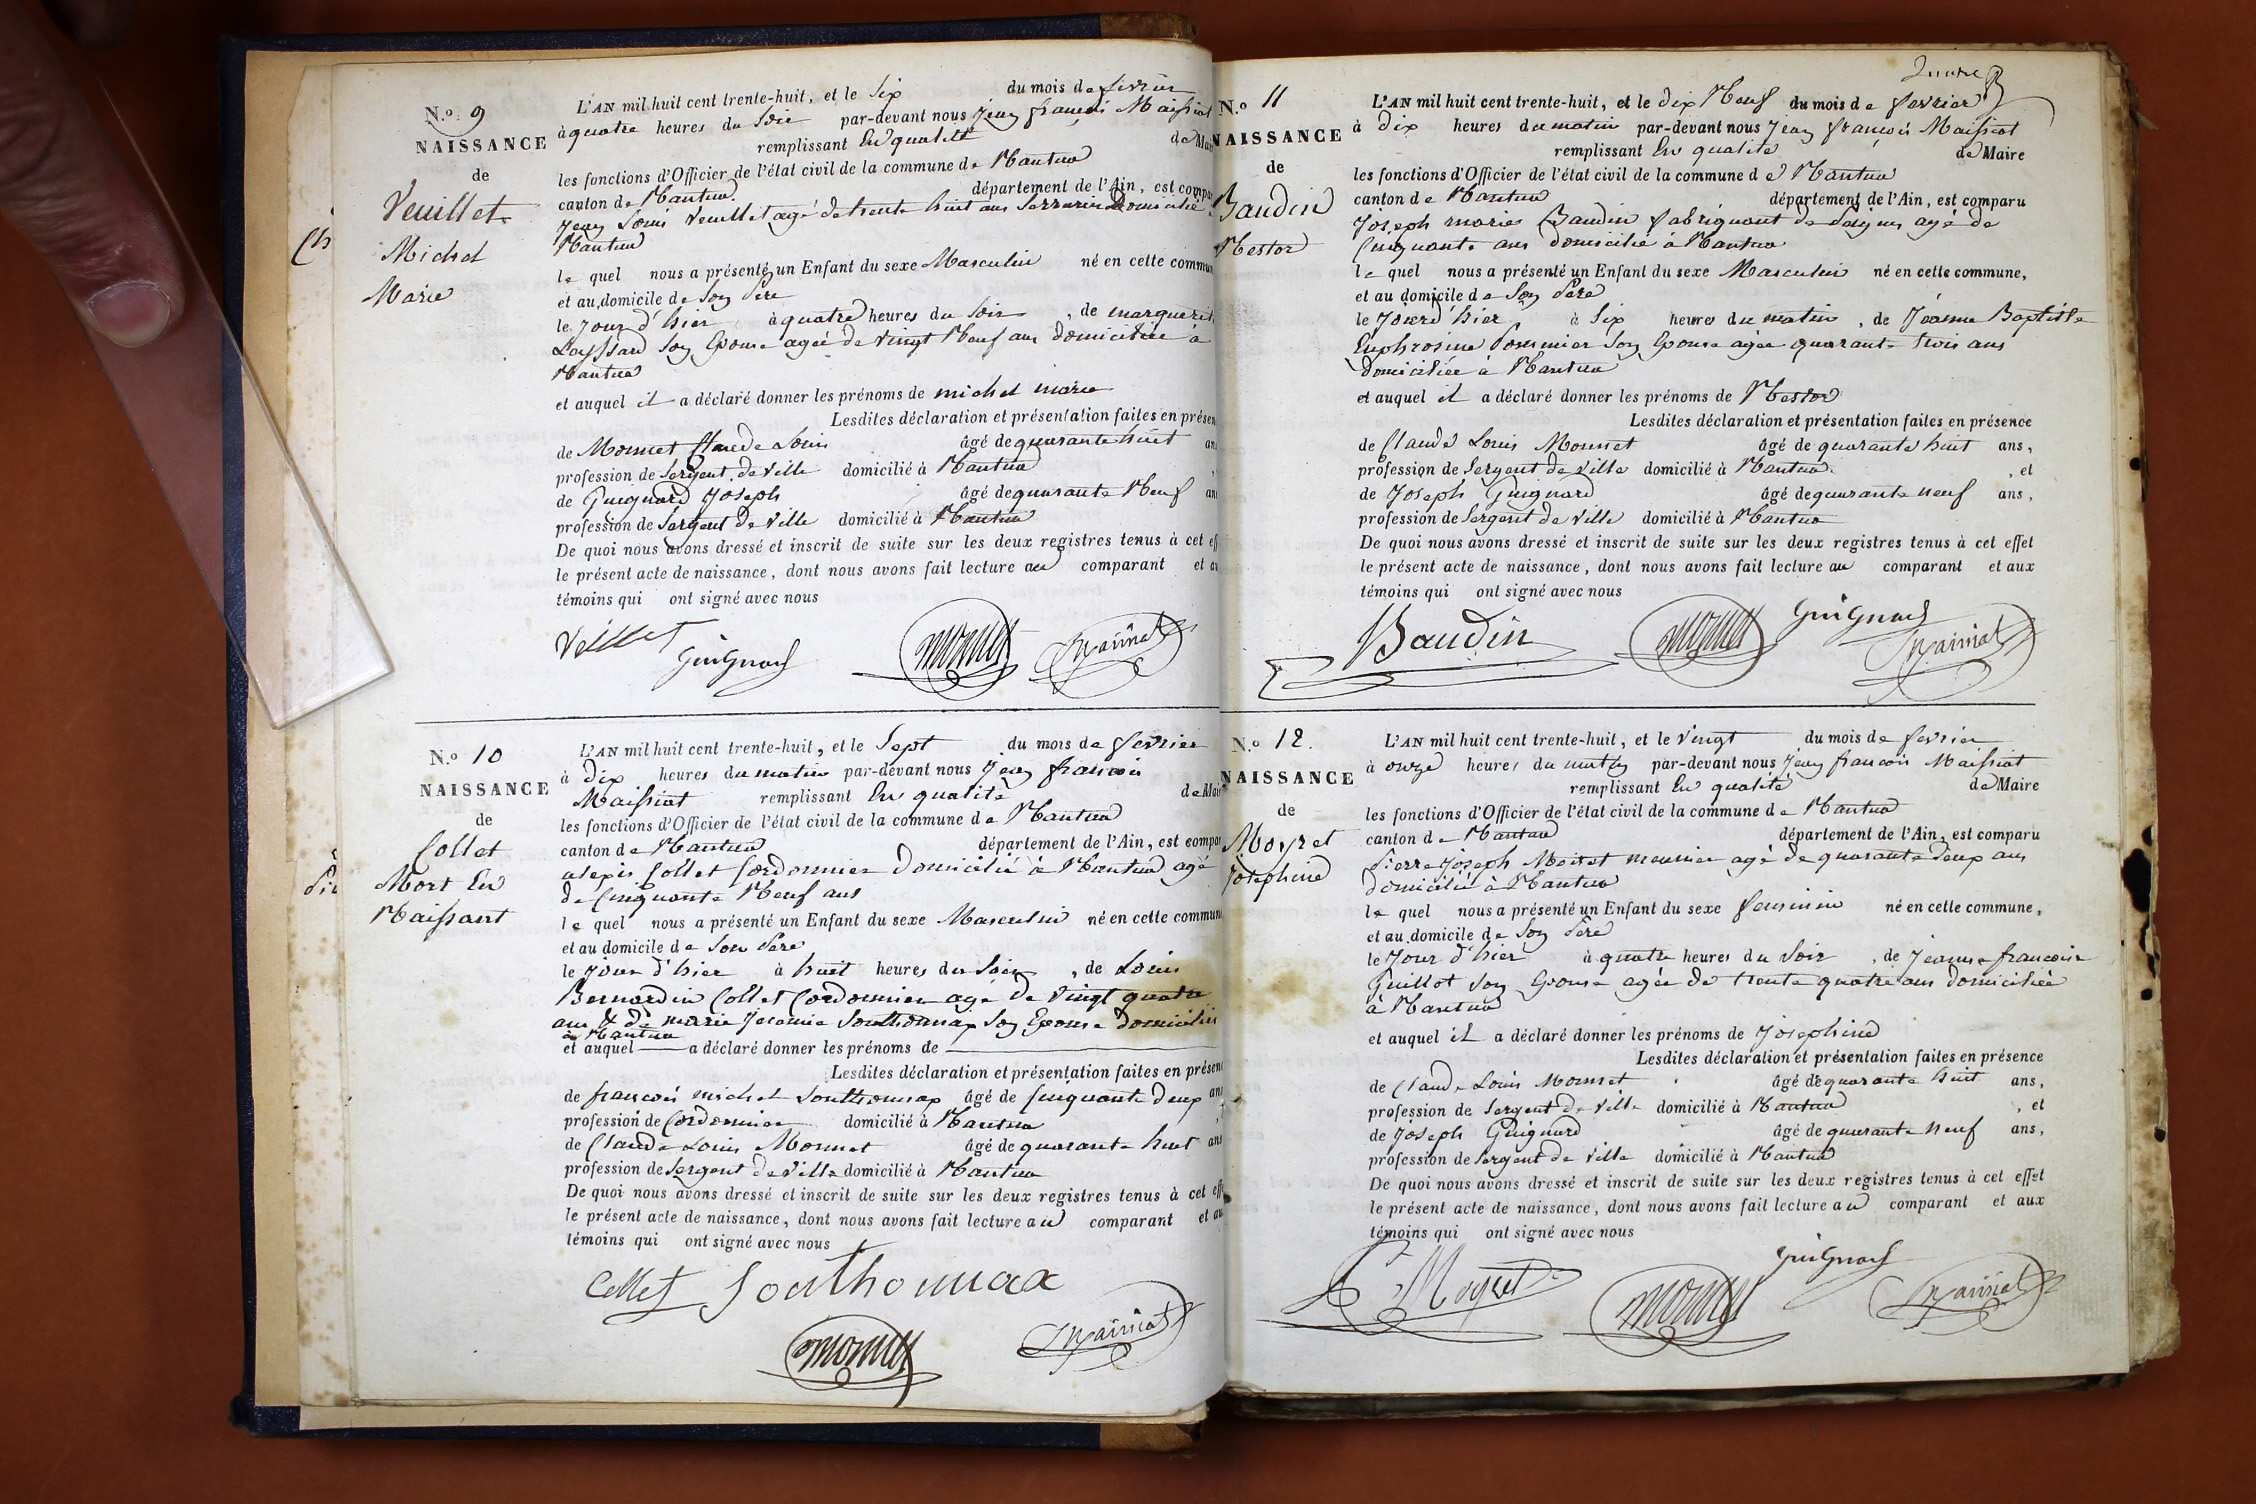 N.o 9
NAISSANCE
de
Veuillet
Michel
Marie
L'AN mil huit cent trente-huit, et le six du mois de fevrier
à quatre heures du Soir par-devant nous Jean françois Maissiat
remplissant En qualité de Mai
les fonctions d'Officier de l'état civil de la commune de Nantua
canton de Nantua département de l'Ain, est compa
Jean Louis Veuillet agé de trente huit ans Serrurier Domicilié à
Nantua
le quel nous a présenté un Enfant du sexe Masculin né en cette commun
et au domicile de Son Pere
le Jour d'hier à quatre heures du Soir, de marguerite
Layssard Son Epouse agée de vingt Neuf ans domiciliée à
Nantua
et auquel il a déclaré donner les prénoms de michel marie
Lesdites déclaration et présentation faites en présen
de Monnet Claude Louis âgé de quarante huit ans
profession de Sergent de ville domicilié à Nantua
de Guignard Joseph âgé de quarante Neuf ans
profession de Sergent de ville domicilié à Nantua
De quoi nous avons dressé et inscrit de suite sur les deux registres tenus à cet eff
le présent acte de naissance, dont nous avons fait lecture au comparant et au
témoins qui ont signé avec nous
Veillet Guignard monnet Maissiat
N.o 10
NAISSANCE
de
Collet
Mort En
Naissant
L'AN mil huit cent trente-huit, et le Sept du mois de fevrier
à Dix heures du matin par-devant nous Jean françois
Maissiat remplissant En qualité de Mai
les fonctions d'Officier de l'état civil de la commune de Nantua
canton de Nantua département de l'Ain, est compa
alexis Collet Cordonnier Domicilié à Nantua agé
de Cinquante Neuf ans
le quel nous a présenté un Enfant du sexe Masculin né en cette commun
et au domicile de Son Pere
le Jour d'hier à huit heures du Soir, de Louis
Bernardin Collet Cordonnier agé de vingt quatre
ans & de marie Jeromie Southonnax Son Epouse domiciliés
à Nantua
et auquel a déclaré donner les prénoms de
Lesdites déclaration et présentation faites en présen
de françois michel Southonnax âgé de Cinquante deux ans
profession de Cordonnier domicilié à Nantua
de Claude Louis Monnet âgé de quarante huit ans
profession de Sergent de ville domicilié à Nantua
De quoi nous avons dressé et inscrit de suite sur les deux registres tenus à cet eff
le présent acte de naissance, dont nous avons fait lecture au comparant et au
témoins qui ont signé avec nous
Collet Southonnax
monnet Maissiat
N.o 11
NAISSANCE
de
Baudin
Nestor
L'AN mil huit cent trente-huit, et le dix Neuf du mois de fevrier
à dix heures du matin par-devant nous Jean françois Maissiat
remplissant En qualité de Maire
les fonctions d'Officier de l'état civil de la commune de Nantua
canton de Nantua département de l'Ain, est comparu
Joseph marie Baudin fabriquant de Peignes agé de
Cinquante ans domicilié à Nantua
le quel nous a présenté un Enfant du sexe Masculin né en cette commune,
et au domicile de Son Pere
le Jour d'hier à Six heures du matin, de Jeanne Baptiste
Euphrosine Pommier Son Epouse agée quarante trois ans
domiciliée à Nantua
et auquel il a déclaré donner les prénoms de Nestor
Lesdites déclaration et présentation faites en présence
de Claude Louis Monnet âgé de quarante huit ans,
profession de Sergent de ville domicilié à Nantua, et
de Joseph Guignard âgé de quarante neuf ans,
profession de Sergent de ville domicilié à Nantua
De quoi nous avons dressé et inscrit de suite sur les deux registres tenus à cet effet
le présent acte de naissance, dont nous avons fait lecture au comparant et aux
témoins qui ont signé avec nous
Baudin monnet Guignard Maissiat
N.o 12.
NAISSANCE
de
Moyret
Josephine
L'AN mil huit cent trente-huit, et le vingt du mois de fevrier
à onze heures du matin par-devant nous Jean françois Maissiat
remplissant En qualité de Maire
les fonctions d'Officier de l'état civil de la commune de Nantua
canton de Nantua département de l'Ain, est comparu
Pierre Joseph Moiret meunier agé de quarante deux ans
domicilié à Nantua
le quel nous a présenté un Enfant du sexe feminin né en cette commune,
et au domicile de Son Pere
le Jour d'hier à quatre heures du Soir, de Jeanne francoise
Guillot Son Epouse agée de trente quatre ans domiciliée
à Nantua
et auquel il a déclaré donner les prénoms de Josephine
Lesdites déclaration et présentation faites en présence
de Claude Louis Monnet âgé de quarante huit ans,
profession de Sergent de ville domicilié à Nantua, et
de Joseph Guignard âgé de quarante neuf ans,
profession de Sergent de ville domicilié à Nantua
De quoi nous avons dressé et inscrit de suite sur les deux registres tenus à cet effet
le présent acte de naissance, dont nous avons fait lecture au comparant et aux
témoins qui ont signé avec nous
Moyret monnet Guignard Maissiat